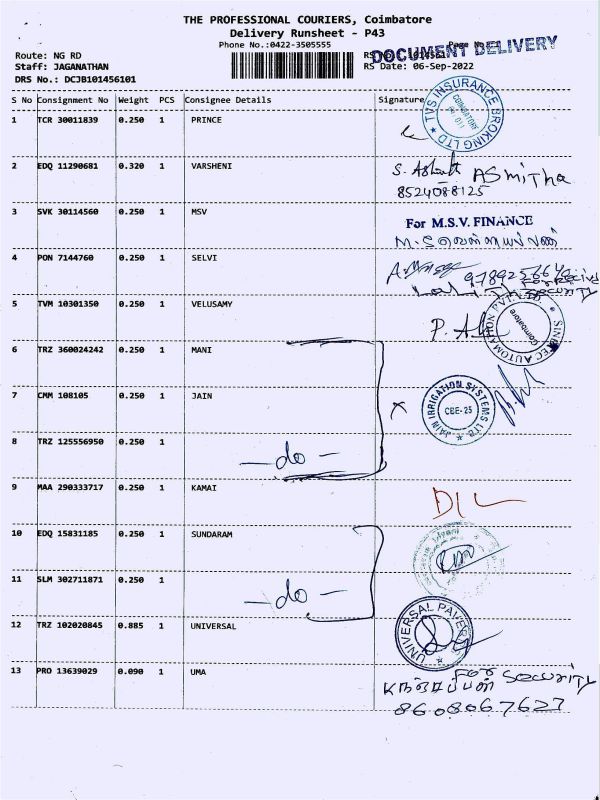 THE PROFESSIONAL COURIERS, Coimbatore
Delivery Runsheet - P43
Phone No.:0422-3505555
DOCUMENT DELIVERY
Route: NG RD
Staff: JAGANATHAN
RS Date: 06-Sep-2022
DRS No.: DCJB101456101
S No Consignment No Weight PCS Consignee Details Signature
1 TCR 30011839 0.250 1 PRINCE
TVS INSURANCE BROKING LTD COIMBATORE
2 EDQ 11290681 0.320 1 VARSHENI
ASmitha
8524088125
3 SVK 30114560 0.250 1 MSV
For M.S.V. FINANCE
4 PON 7144760 0.250 1 SELVI
Security
5 TVM 10301350 0.250 1 VELUSAMY
AUTOMATION Coimbatore
6 TRZ 360024242 0.250 1 MANI
7 CMM 108105 0.250 1 JAIN
JAIN IRRIGATION SYSTEMS LTD CBE-25
8 TRZ 125556950 0.250 1
—do—
9 MAA 290333717 0.250 1 KAMAI
10 EDQ 15831185 0.250 1 SUNDARAM
11 SLM 302711871 0.250 1
—do—
12 TRZ 102020845 0.885 1 UNIVERSAL
UNIVERSAL PAVERS
13 PRO 13639029 0.090 1 UMA
For Security
8608067627